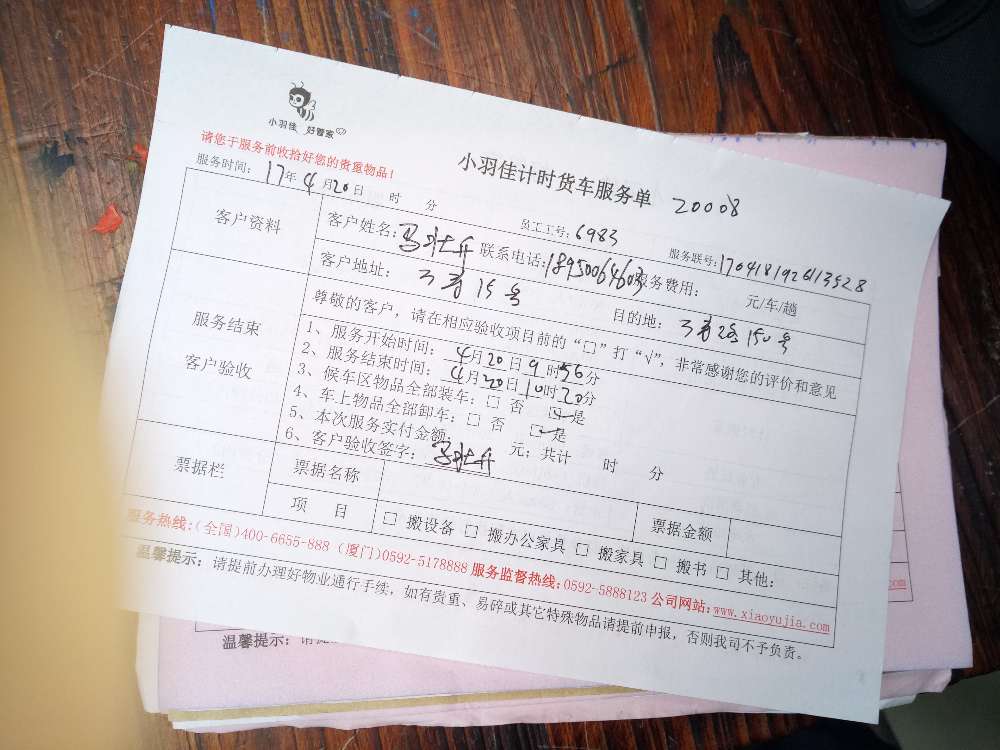 小羽佳 好管家
请您于服务前收拾好您的贵重物品！
小羽佳计时货车服务单 20008
服务时间：17年4月20日 时 分 员工工号：6983 服务联号：170418192613528
客户资料 客户姓名：马 联系电话：18950064603 服务费用： 元/车/趟
客户地址： 15号 目的地： 150号
服务结束
客户验收
尊敬的客户，请在相应验收项目前的“□”打“√”，非常感谢您的评价和意见
1、服务开始时间：4月20日9时56分
2、服务结束时间：4月20日10时20分
3、候车区物品全部装车：□ 否 ☑是
4、车上物品全部卸车：□ 否 ☑是
5、本次服务实付金额： 元；共计 时 分
6、客户验收签字：马
票据栏 票据名称 票据金额
项 目 □ 搬设备 □ 搬办公家具 □ 搬家具 □ 搬书 □ 其他：
服务热线：(全国)400-6655-888 (厦门)0592-5178888 服务监督热线：0592-5888123 公司网站：www.xiaoyujia.com
温馨提示：请提前办理好物业通行手续，如有贵重、易碎或其它特殊物品请提前申报，否则我司不予负责。
温馨提示：请提